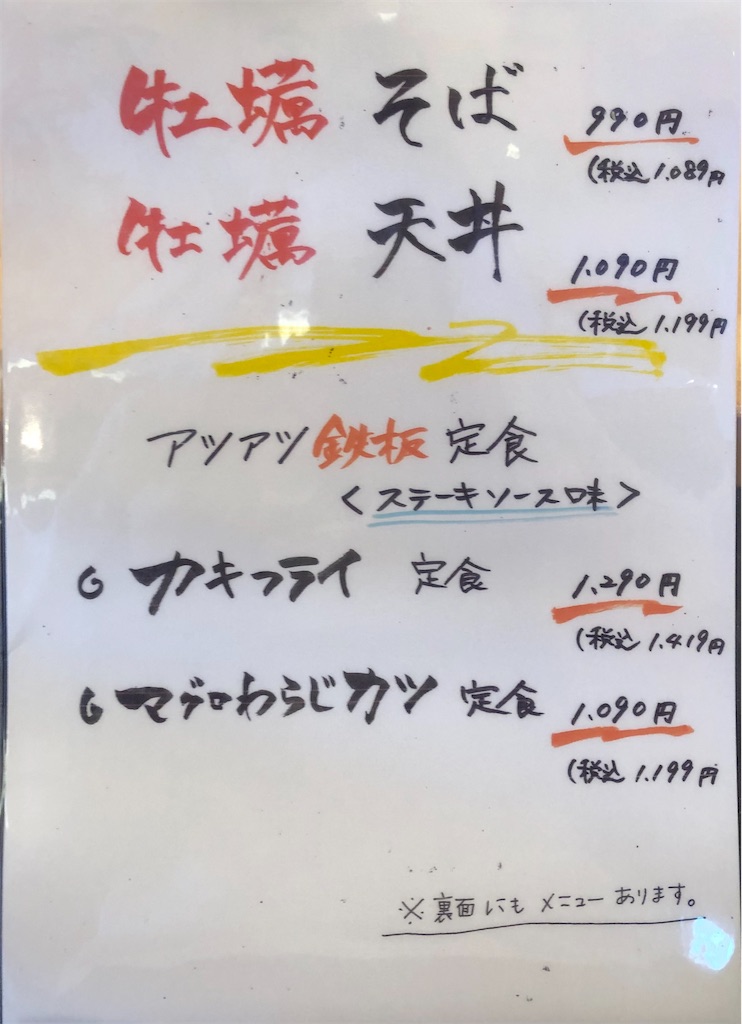 牡蠣 そば 990円
(税込 1.089円
牡蠣 天丼 1.090円
(税込 1.199円
アツアツ鉄板 定食
<ステーキソース味>
カキフライ 定食 1.290円
(税込 1.419円
マグロわらじカツ 定食 1.090円
(税込 1.199円
※裏面にもメニューあります。